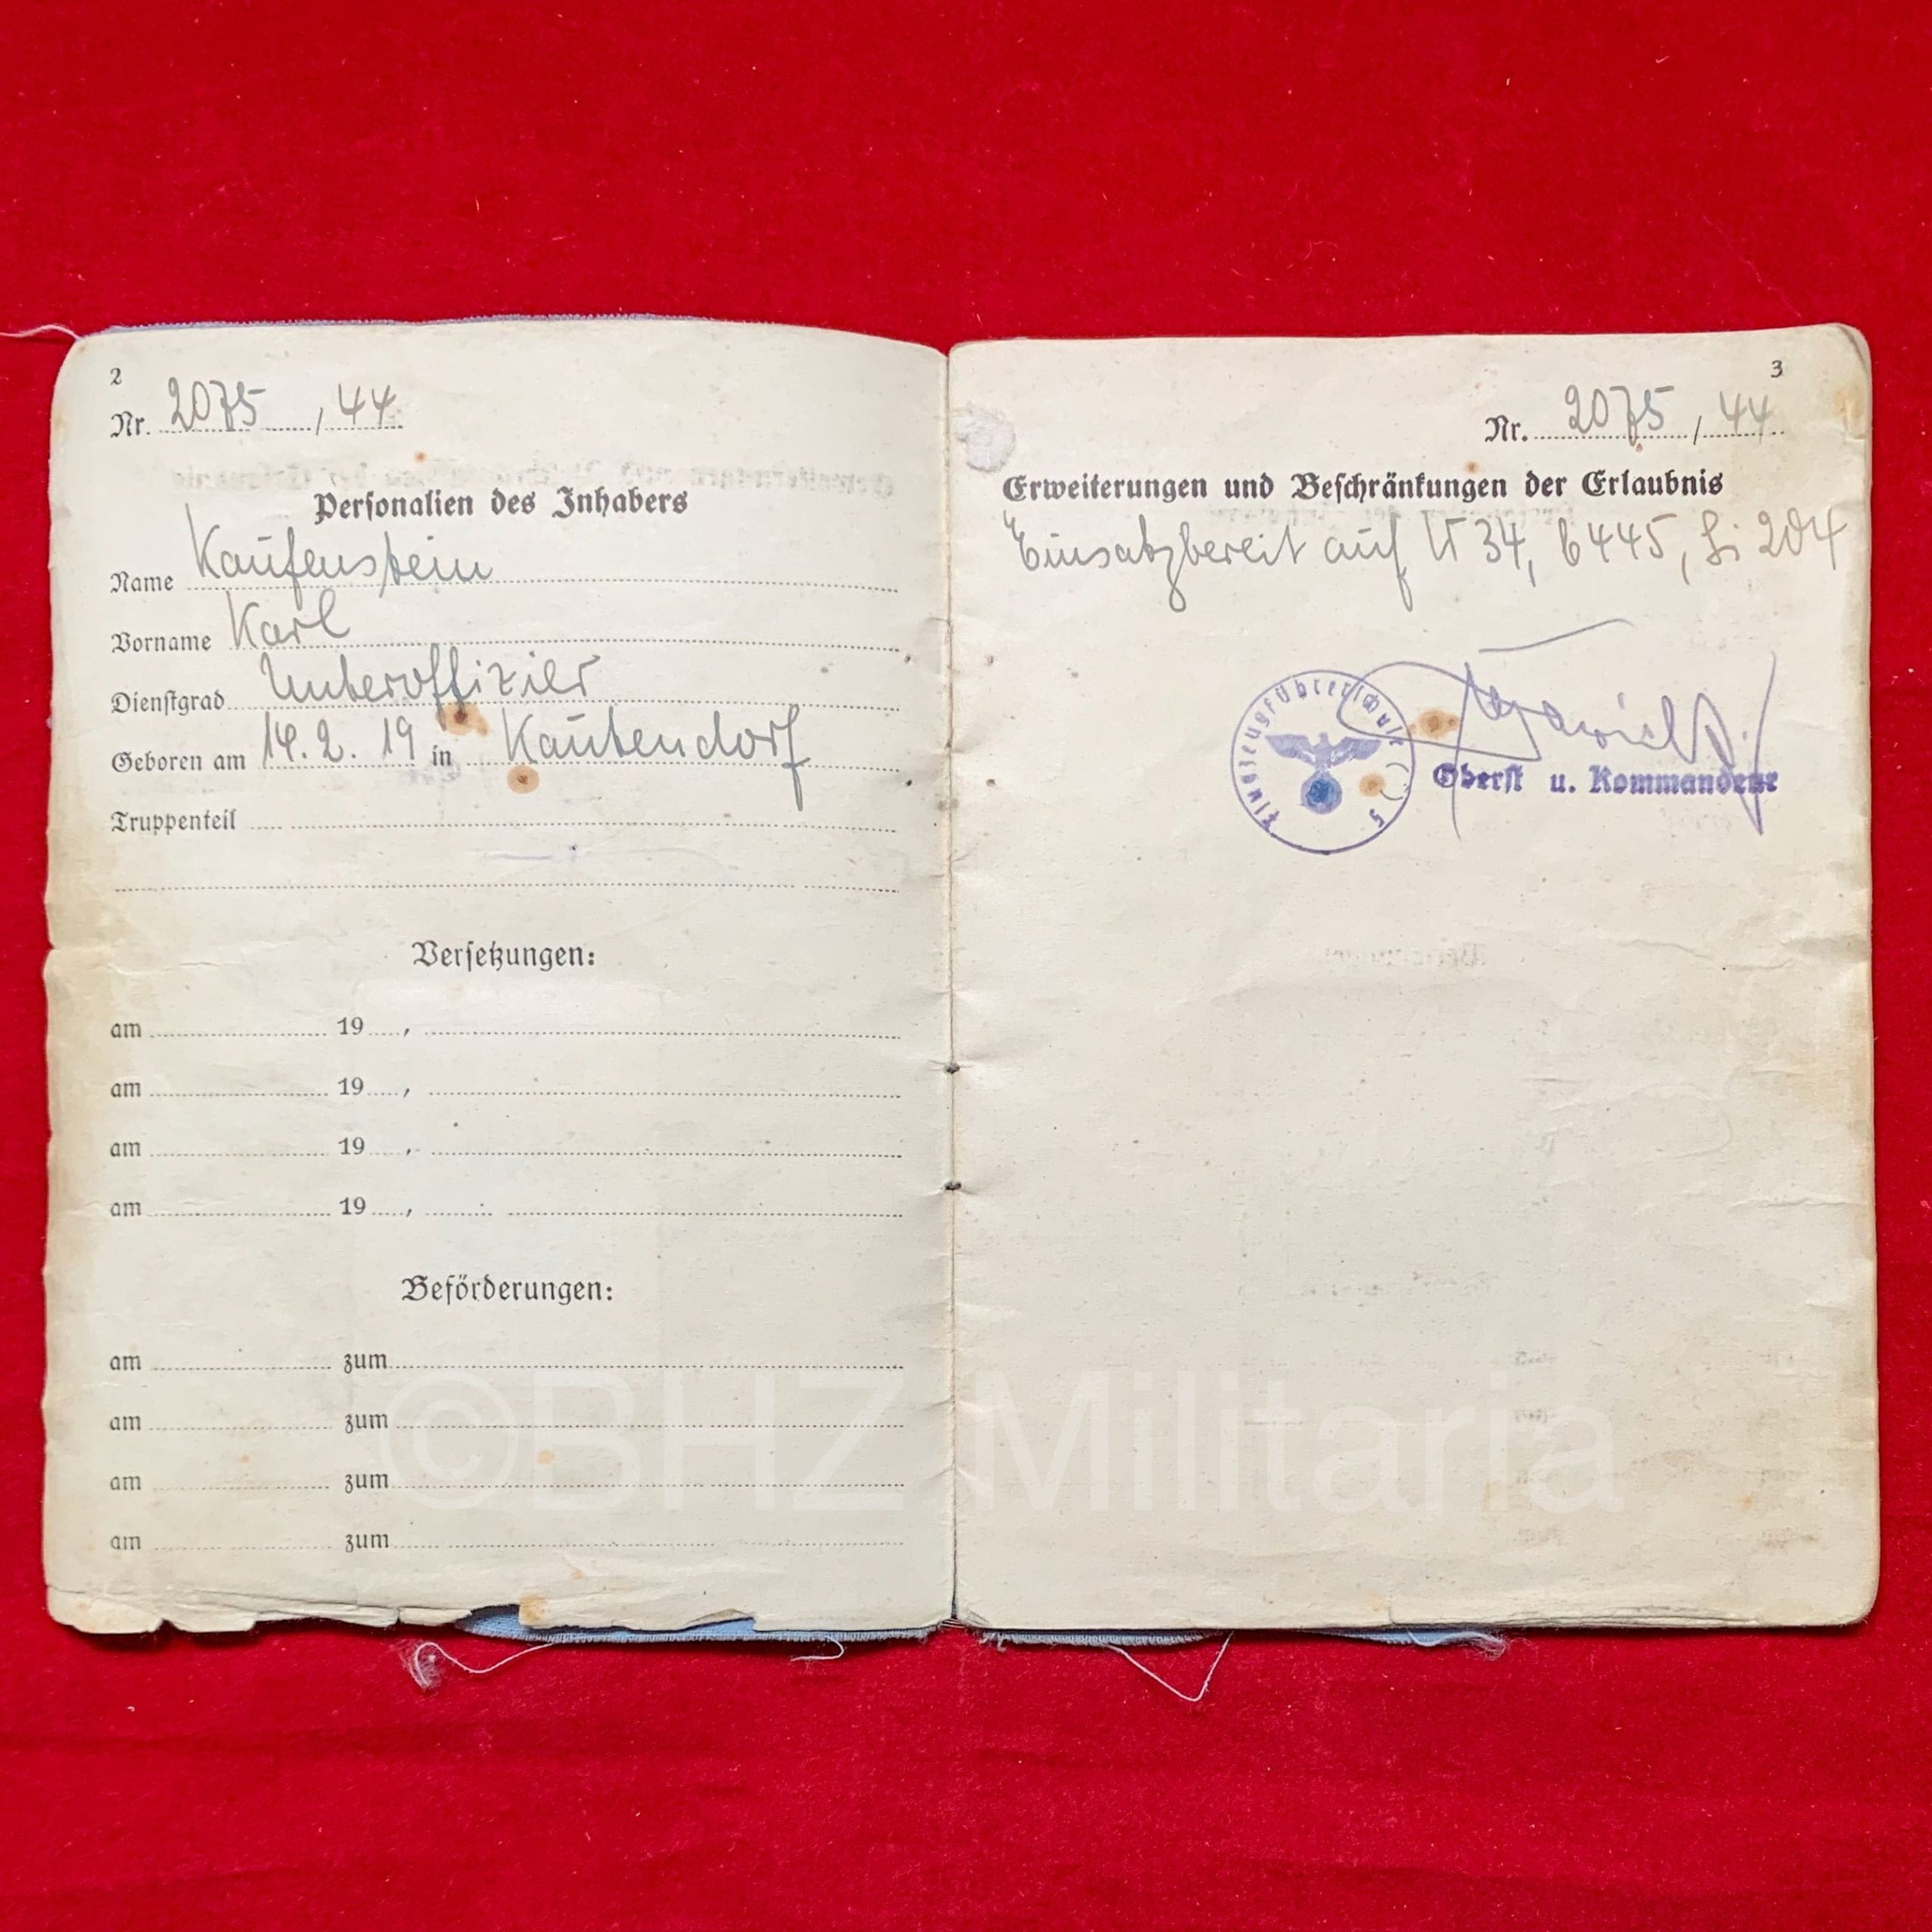 2
Nr. 2075 / 44
Personalien des Inhabers
Name Kaufenstein
Vorname Karl
Dienstgrad Unteroffizier
Geboren am 14. 2. 19 in Kautendorf
Truppenteil
Versetzungen:
am 19 ,
am 19 ,
am 19 ,
am 19 ,
Beförderungen:
am zum
am zum
am zum
am zum
3
Nr. 2075 / 44
Erweiterungen und Beschränkungen der Erlaubnis
Einsatzbereit auf W 34, C 445, Si 204
Flugzeugführerschule
Oberst u. Kommandeur
©BHZ Militaria